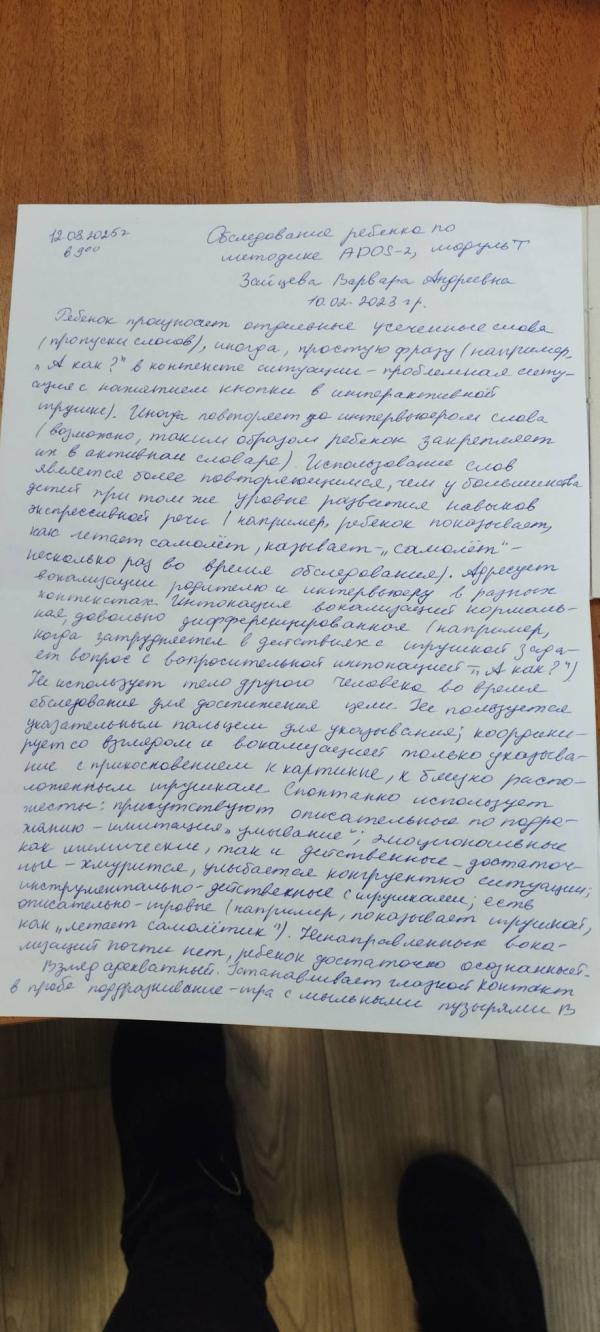 12.08.2025 г
в 9⁰⁰
Обследование ребенка по
методике ADOS-2, модуль Т
Зайцева Варвара Андреевна
10.02.2023 гр.
Ребенок произносит отдельные усеченные слова
(пропуски слогов), иногда, простую фразу (например,
„А как?" в контексте ситуации - проблемная ситу-
ация с нажатием кнопки в интерактивной
игрушке). Иногда повторяет за интервьюером слова
(возможно, таким образом ребенок закрепляет
их в активном словаре). Использование слов
является более повторяющимся, чем у большинства
детей при том же уровне развития навыков
экспрессивной речи (например, ребенок показывает,
как летает самолёт, называет - „самолёт" -
несколько раз во время обследования). Адресует
вокализации родителю и интервьюеру в разных
контекстах. Интонация вокализаций нормаль-
ная, довольно дифференцированная (например,
когда затрудняется в действиях с игрушкой зада-
ет вопрос с вопросительной интонацией - „А как?")
Не использует тело другого человека во время
обследования для достижения цели. Не пользуется
указательным пальцем для указывания; координи-
рует со взглядом и вокализацией только указыва-
ние с прикосновением к картинке, к близко распо-
ложенным игрушкам. Спонтанно использует
жесты: присутствуют описательные по подра-
жанию - имитация „умывание"; эмоциональные
как мимические, так и действенные - достаточ-
ные - хмурится, улыбается конгруентно ситуации;
инструментально-действенные с игрушками; есть
описательно-игровые (например, показывает игрушкой,
как „летает самолётик"). Ненаправленных вока-
лизаций почти нет, ребенок достаточно осознанный.
Взгляд адекватный. Устанавливает глазной контакт
в пробе поддразнивание - игра с мыльными пузырями. В